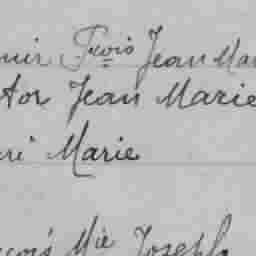 nir Frois Jean Mar
tor Jean Marie
ri Marie
çois Mie Joseph